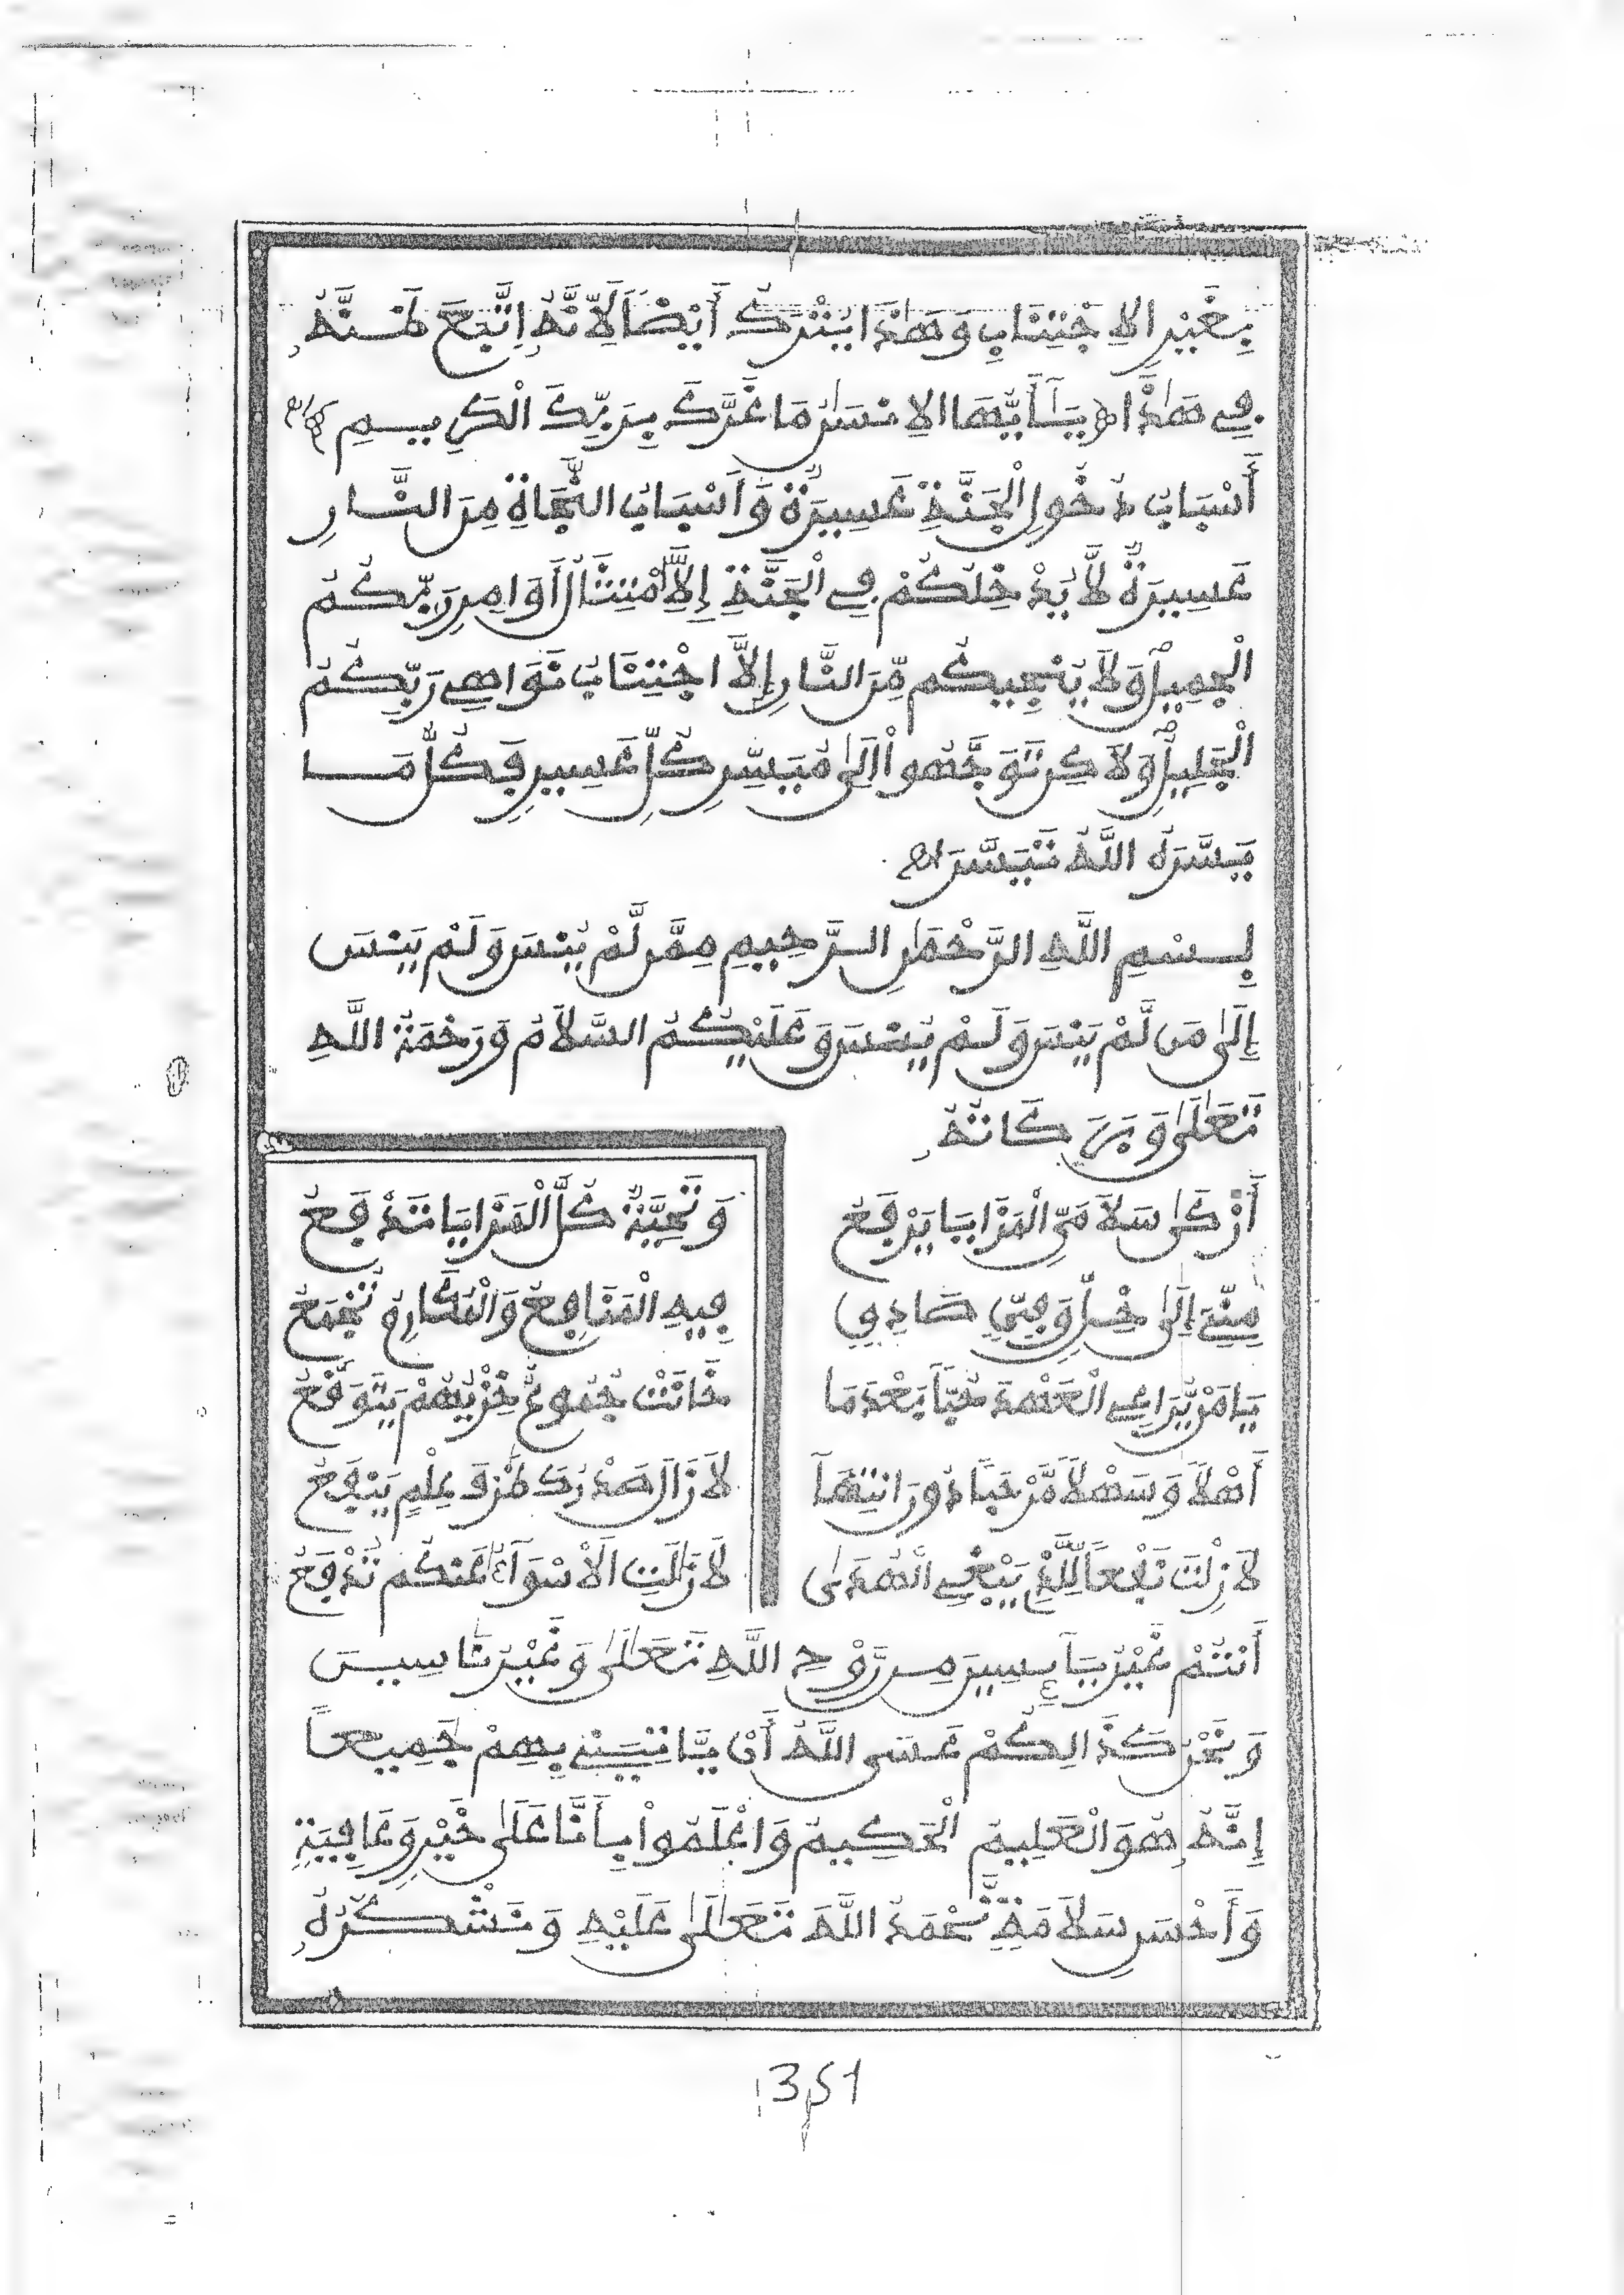 بِغَيْرِ الاِجْتِنَابِ وَهَٰذَا يُتْرَكُ أَيْضًا لِأَنَّهُ اِتَّبَعَ ظَنَّهُ
فِي هَٰذَا يَٰأَيُّهَا الاِنسَٰنُ مَا غَرَّكَ بِرَبِّكَ الْكَرِيمِ
أَسْبَابُ دُخُولِ الْجَنَّةِ عَسِيرَةٌ وَأَسْبَابُ النَّجَاةِ مِنَ النَّارِ
عَسِيرَةٌ لَّا يُدْخِلُكُمْ فِي الْجَنَّةِ إِلَّا امْتِثَالُ أَوَامِرِ رَبِّكُمُ
الْجَمِيلِ وَلَا يُنْجِيكُم مِّنَ النَّارِ إِلَّا اجْتِنَابُ نَوَاهِي رَبِّكُمُ
الْجَلِيلِ وَلَٰكِن تَوَجَّهُواْ إِلَىٰ مُيَسِّرِ كُلِّ عَسِيرٍ فَكُلُّ مَا
يَسَّرَهُ اللَّهُ تَيَسَّرَ اهـ
بِسْمِ اللَّهِ الرَّحْمَٰنِ الرَّحِيمِ مِمَّن لَّمْ يُنْسَ وَلَمْ يَنْسَ
إِلَىٰ مَن لَّمْ يَنْسَ وَلَمْ يُنْسَ وَعَلَيْكُمُ السَّلَامُ وَرَحْمَةُ اللَّهِ
تَعَٰلَىٰ وَبَرَكَاتُهُ
أَزْكَىٰ سَلَامَيِ الْمَزَايَا يَرْفَعُ وَتَحِيَّةٌ كُلَّ الْمَزَايَا تَدْفَعُ
مِنِّي إِلَىٰ خِلٍّ وَفِيٍّ فِيهِ الْمَنَافِعُ وَالْمَكَارِهُ تُجْمَعُ
يَا مَنْ يُرَاعِي الْعَهْدَ بَعْدَ مَا خَانَتْ جُمُوعٌ خِزْيُهُمْ يُتَوَقَّعُ
أَهْلًا وَسَهْلًا مَّرْحَبًا لَا زَالَ صَدْرُكَ ظَرْفَ عِلْمٍ يَنْفَعُ
لَا زِلْتَ نَفْعًا لِلَّذِي يَبْغِي الْهُدَىٰ لَا زَالَتِ الْأَسْوَاءُ عَنكُم تُدْفَعُ
أَنتُمْ غَيْرُ يَآئِسِينَ مِن رَّوْحِ اللَّهِ تَعَٰلَىٰ وَغَيْرُ نَاسِينَ
وَنَحْنُ كَذَالِكُمْ عَسَى اللَّهُ أَنْ يَّاتِيَنِي بِهِمْ جَمِيعًا
إِنَّهُ هُوَ الْعَلِيمُ الْحَكِيمُ وَاعْلَمُواْ بِأَنَّا عَلَىٰ خَيْرٍ وَعَافِيَةٍ
وَأَحْسَنِ سَلَامَةٍ نَّحْمَدُ اللَّهَ تَعَٰلَىٰ عَلَيْهِ وَنَشْكُرُهُ